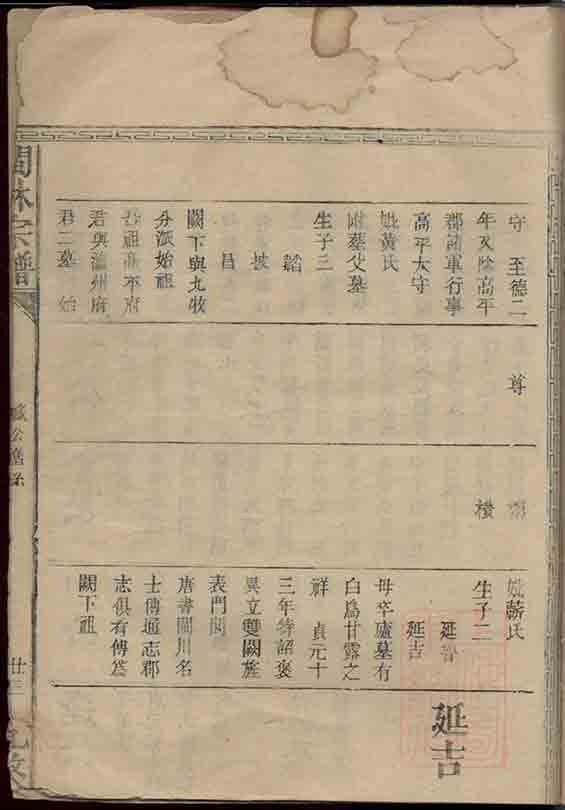 守 至德二
年又除高平
郡諸軍行事
高平太守
妣黃氏
附墓父墓
生子三
韜
披
昌
闕下與九牧
分派始祖
祖高平府
君與溫州府
君二墓 始
尊
橫
妣薛氏
生子二
延
延吉
母卒廬墓有
白烏甘露之
祥 貞元十
三年特詔褒
異立雙闕旌
表門閭
唐書閩川名
士傳通志郡
志俱有傳爲
闕下祖
延吉
林宗譜
廿三
九牧